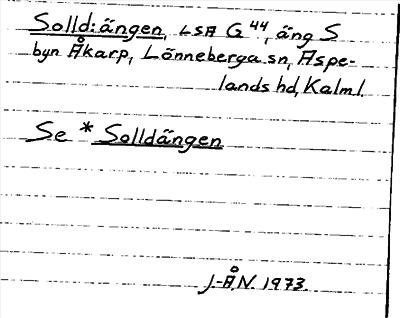 Solld:ängen, LSA G 44, äng S
byn Åkarp, Lönneberga sn, Aspe-
lands hd, Kalm l.
Se * Solldängen
J-Å.N. 1973.